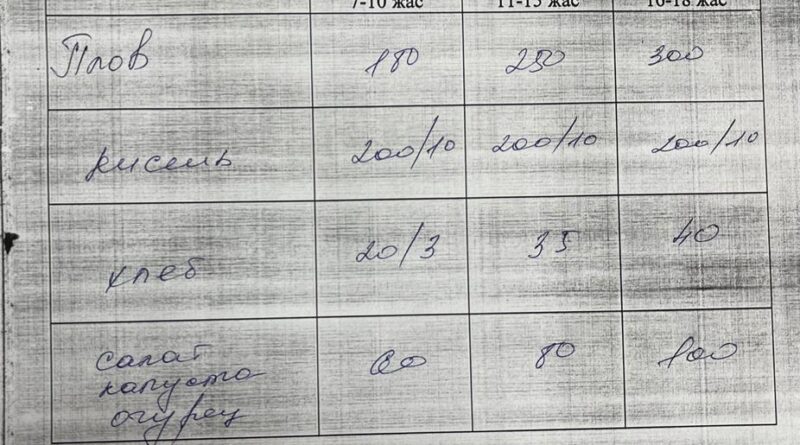 7-10 жас 11-15 жас 16-18 жас
Плов 180 250 300
кисель 200/10 200/10 200/10
хлеб 20/3 35 40
салат 60 80 100
капуста
огурец